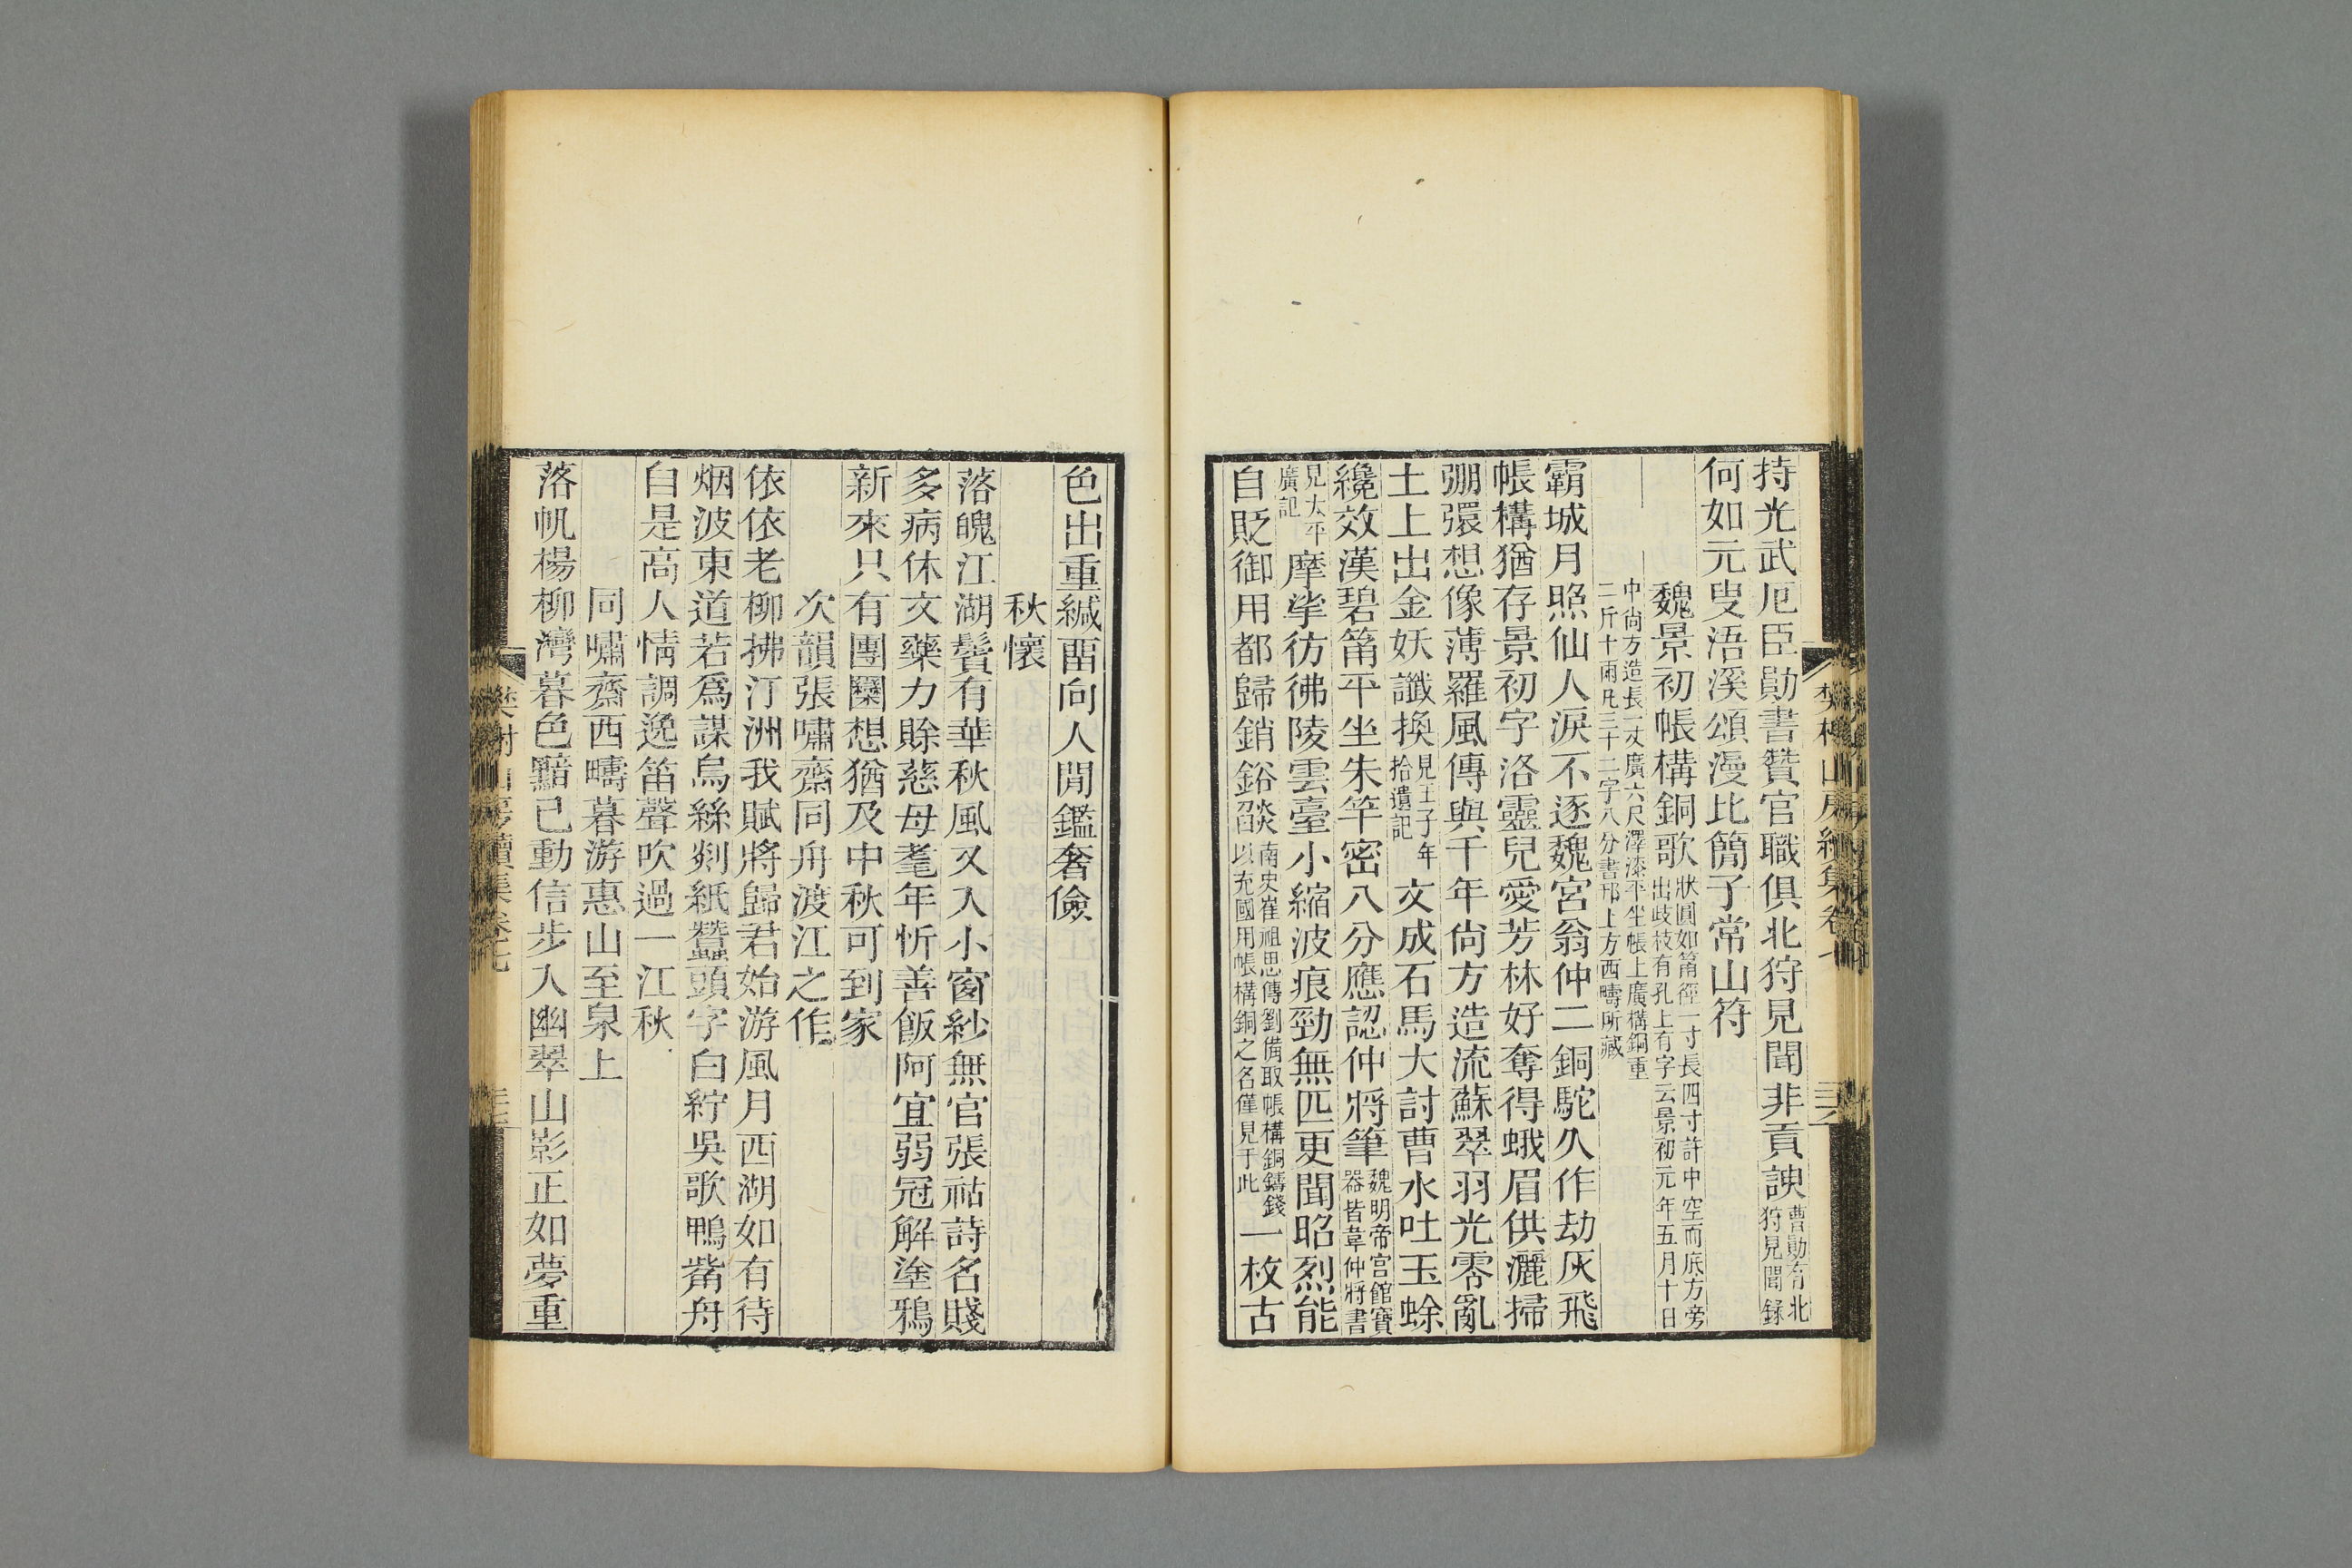 持光武厄臣勛書贊官職俱北狩見聞非貢諛曹勛有北狩見聞録
何如元叟浯溪頌漫比簡子常山符
魏景初帳構銅歌狀圓如筩徑一寸長四寸許中空而底方旁出歧枝有孔上有字云景初元年五月十日
中尚方造長一丈廣六尺澤漆平坐帳上廣構銅重二斤十兩凡三十二字八分書邗上方西疇所藏
霸城月照仙人淚不逐魏宮翁仲二銅駝久作劫灰飛
帳構猶存景初字洛靈兒愛芳林好奪得蛾眉供灑掃
弸彋想像薄羅風傳與千年尙方造流蘇翠羽光零亂
土上出金妖讖換見王子年拾遺記文成石馬大討曹水吐玉蜍
纔效漢碧筩平坐朱竿密八分應認仲將筆魏明帝宫館寶器皆韋仲將書
見太平廣記摩挲彷彿陵雲臺小縮波痕勁無匹更聞昭烈能
自貶御用都歸銷鋊㷔南史崔祖思傳劉備取帳構銅鑄錢以充國用帳構銅之名僅見于此一枚古
樊榭山房續集卷七
色出重緘畱向人閒鑑奢儉
秋懷
落魄江湖鬢有華秋風又入小窗紗無官張祜詩名賤
多病休文藥力賒慈母耄年忻善飯阿宜弱冠解塗鴉
新來只有團圞想猶及中秋可到家
次韻張嘯齋同舟渡江之作
依依老柳拂汀洲我賦將歸君始游風月西湖如有待
烟波東道若爲謀烏絲剡紙蠶頭字白紵吳歌鴨觜舟
自是高人情調逸笛聲吹過一江秋
同嘯齋西疇暮游惠山至泉上
落帆楊柳灣暮色黯已動信步入幽翠山影正如夢重
樊榭山房續集卷七